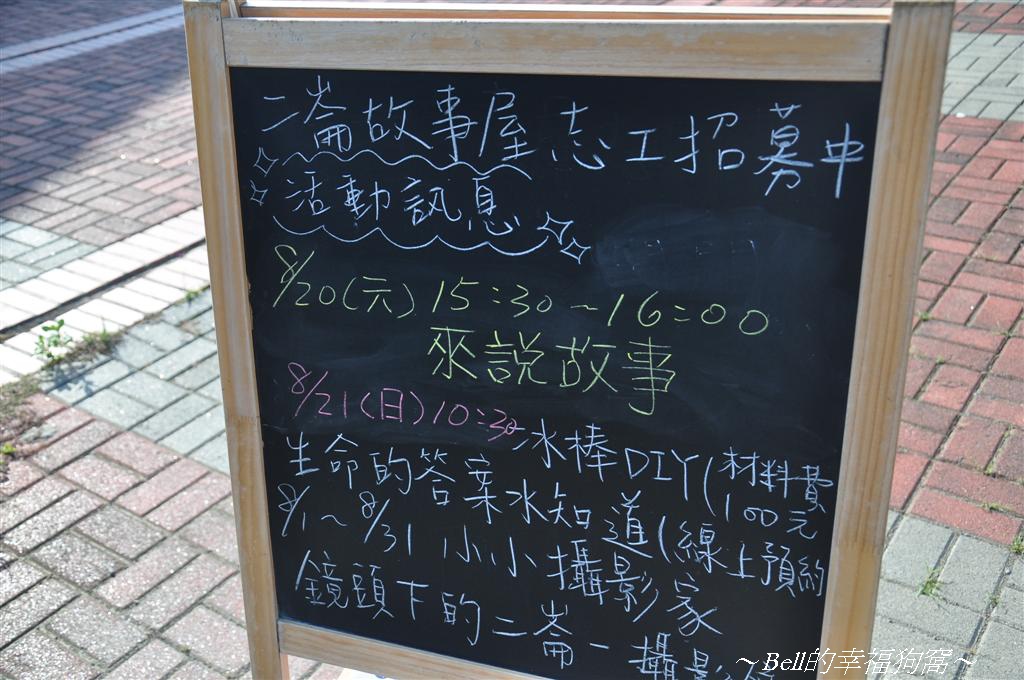 二崙故事屋 志工招募中
活動訊息
8/20(六) 15:30~16:00
來說故事
8/21(日) 10:30 冰棒DIY(材料費100元
生命的答案水知道(線上預約
8/1~8/31 小小攝影家
鏡頭下的二崙-攝影
~Bell的幸福狗窩~